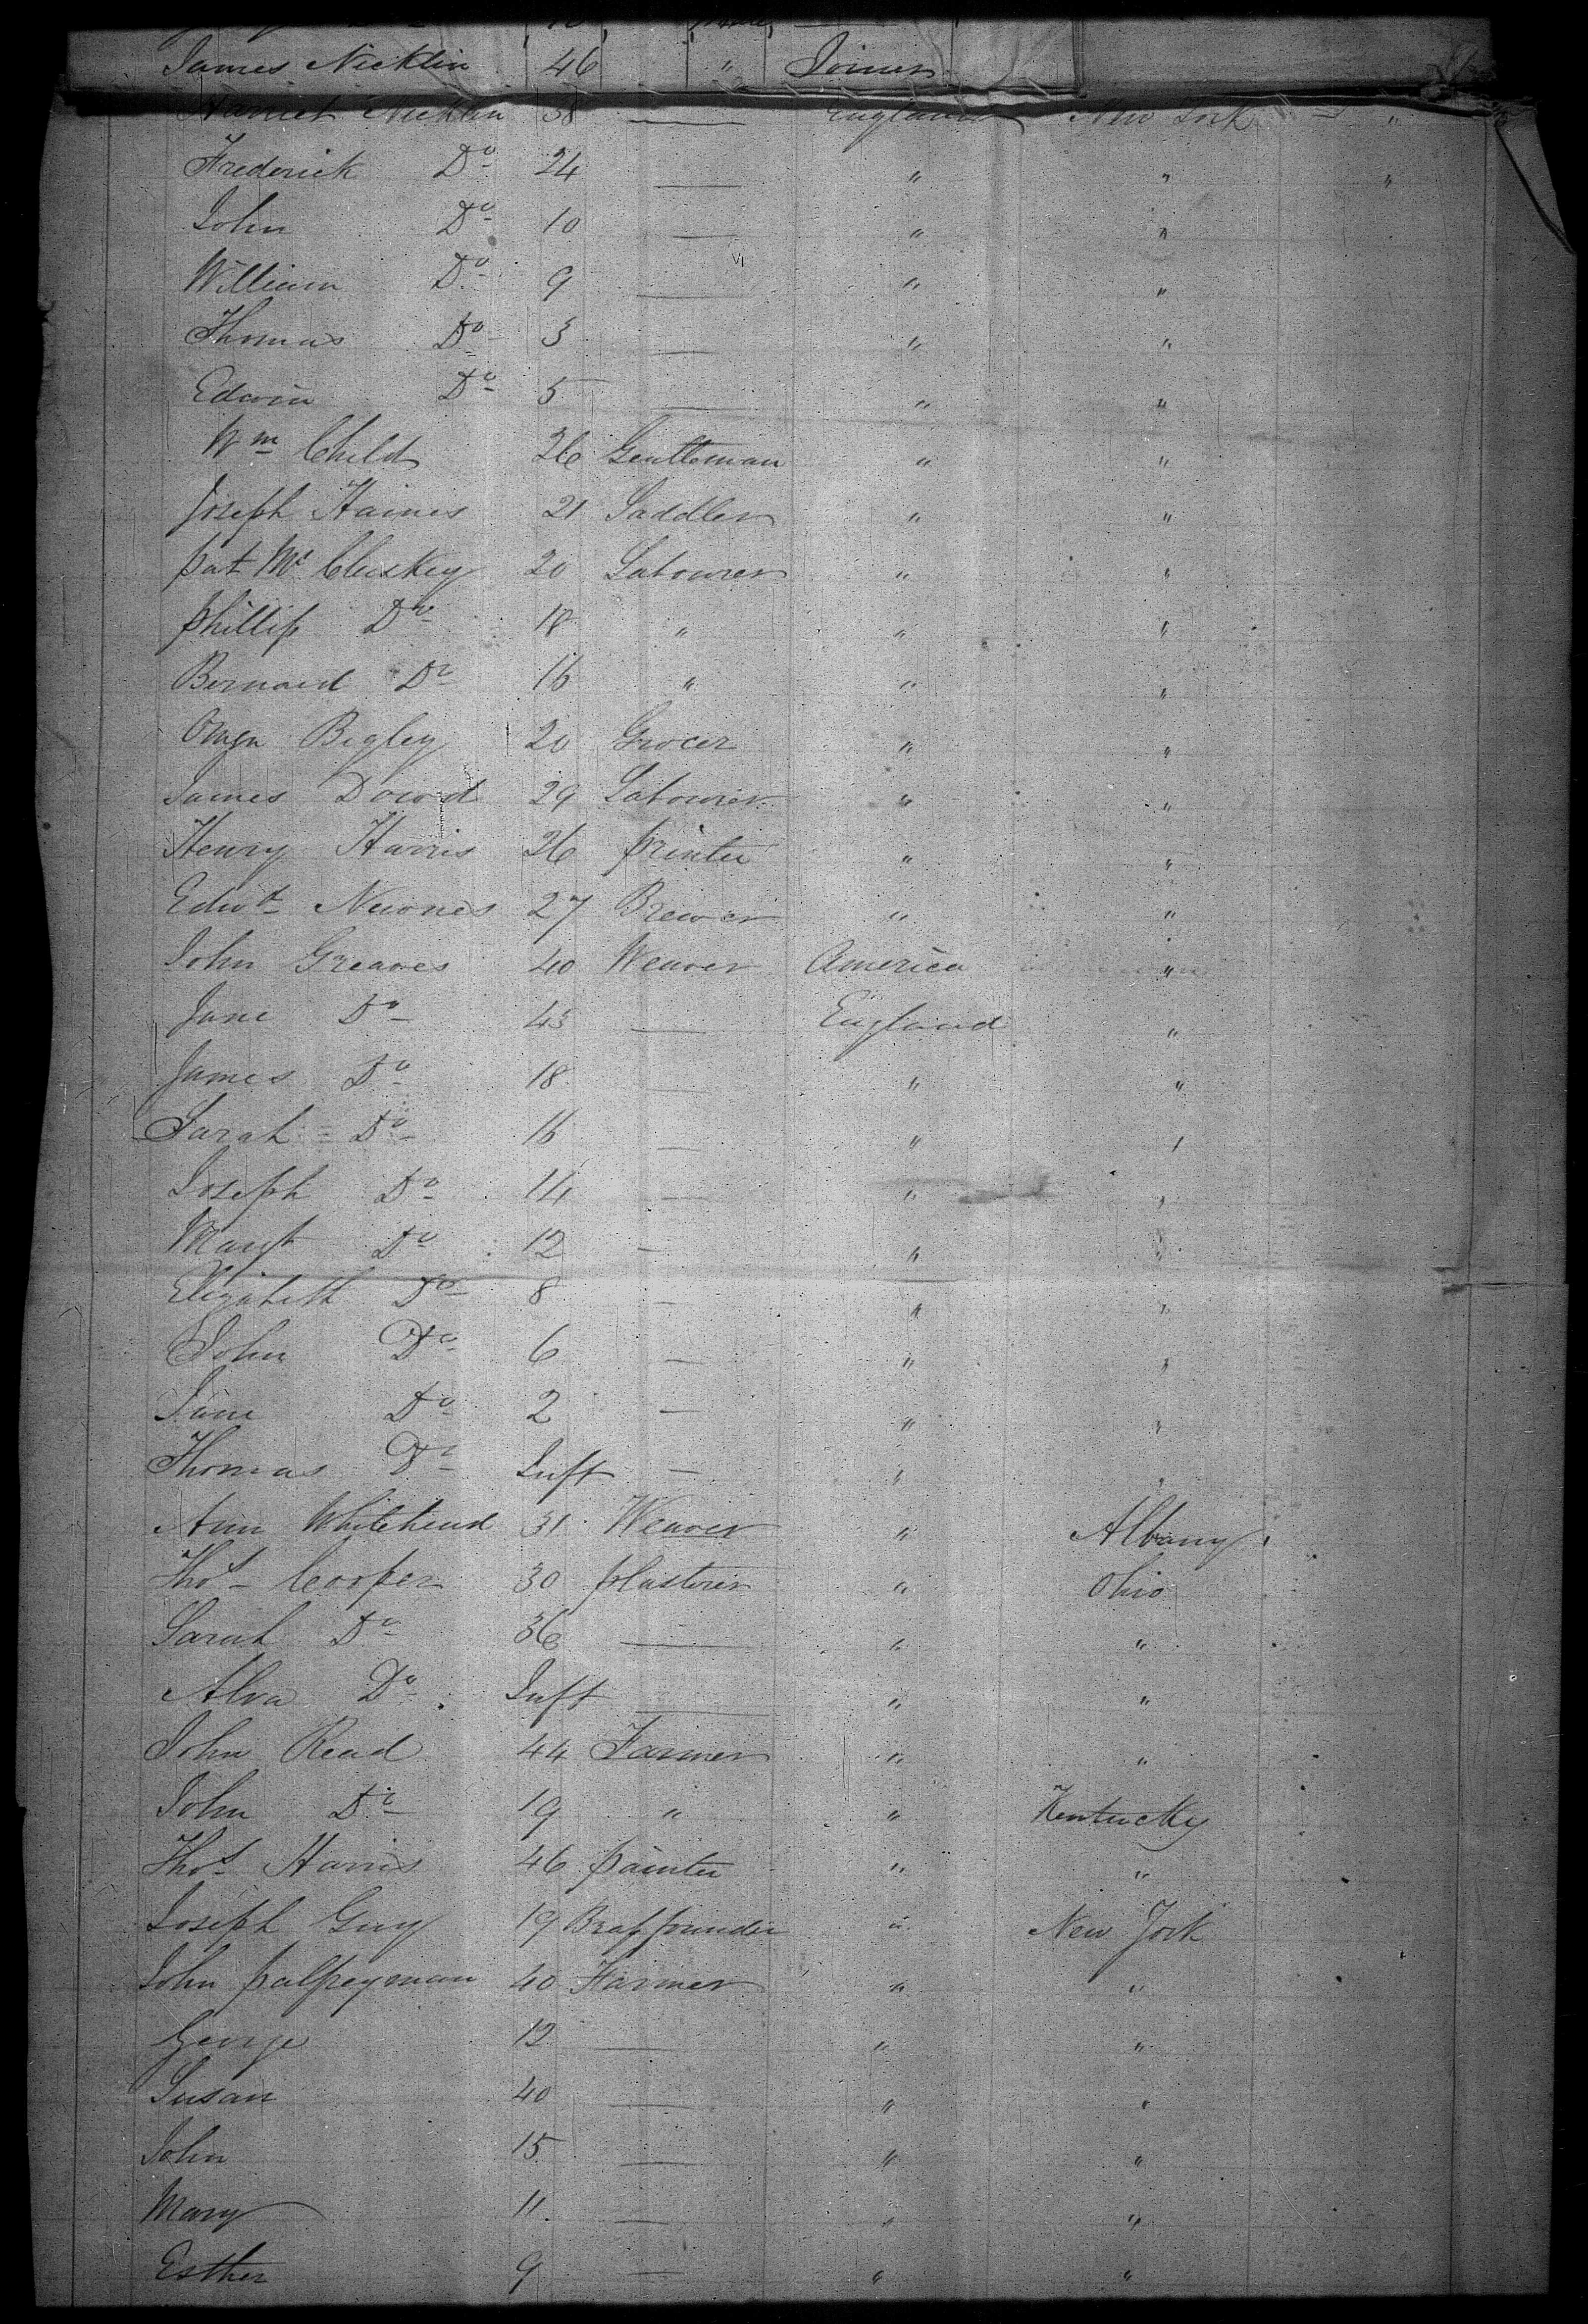 James Nicklin 46 " Joiner
Harriet Nicklin 38 — England New York "
Frederick Do 24 — " " "
John Do 10 — " "
William Do 9 — " "
Thomas Do 3 — " "
Edwin Do 5 — " "
Wm Child 26 Gentleman " "
Joseph Haines 21 Saddler " "
Pat Mc Cluskey 20 Labourer " "
Phillip Do 18 " " "
Bernard Do 16 " " "
Owen Begley 20 Grocer " "
James Dowd 29 Labourer " "
Henry Harris 26 Printer " "
Edwd Newnes 27 Brewer " "
John Greaves 40 Weaver America "
Jane Do 45 — England "
James Do 18 — " "
Sarah Do 16 — " "
Joseph Do 14 — " "
Margt Do 12 — " "
Elizabeth Do 8 — " "
John Do 6 — " "
Jane Do 2 — " "
Thomas Do Inft — " "
Ann Whitehead 31 Weaver " Albany
Thos Cooper 30 Plasterer " Ohio
Sarah Do 36 — " "
Alva Do Inft — " "
John Read 44 Farmer " "
John Do 19 " " Kentucky
Thos Harris 46 Painter " "
Joseph Guy 19 Brassfounder " New York
John Palfreyman 40 Farmer " "
George 12 — " "
Susan 40 — " "
John 15 — " "
Mary 11 — " "
Esther 9 — " "